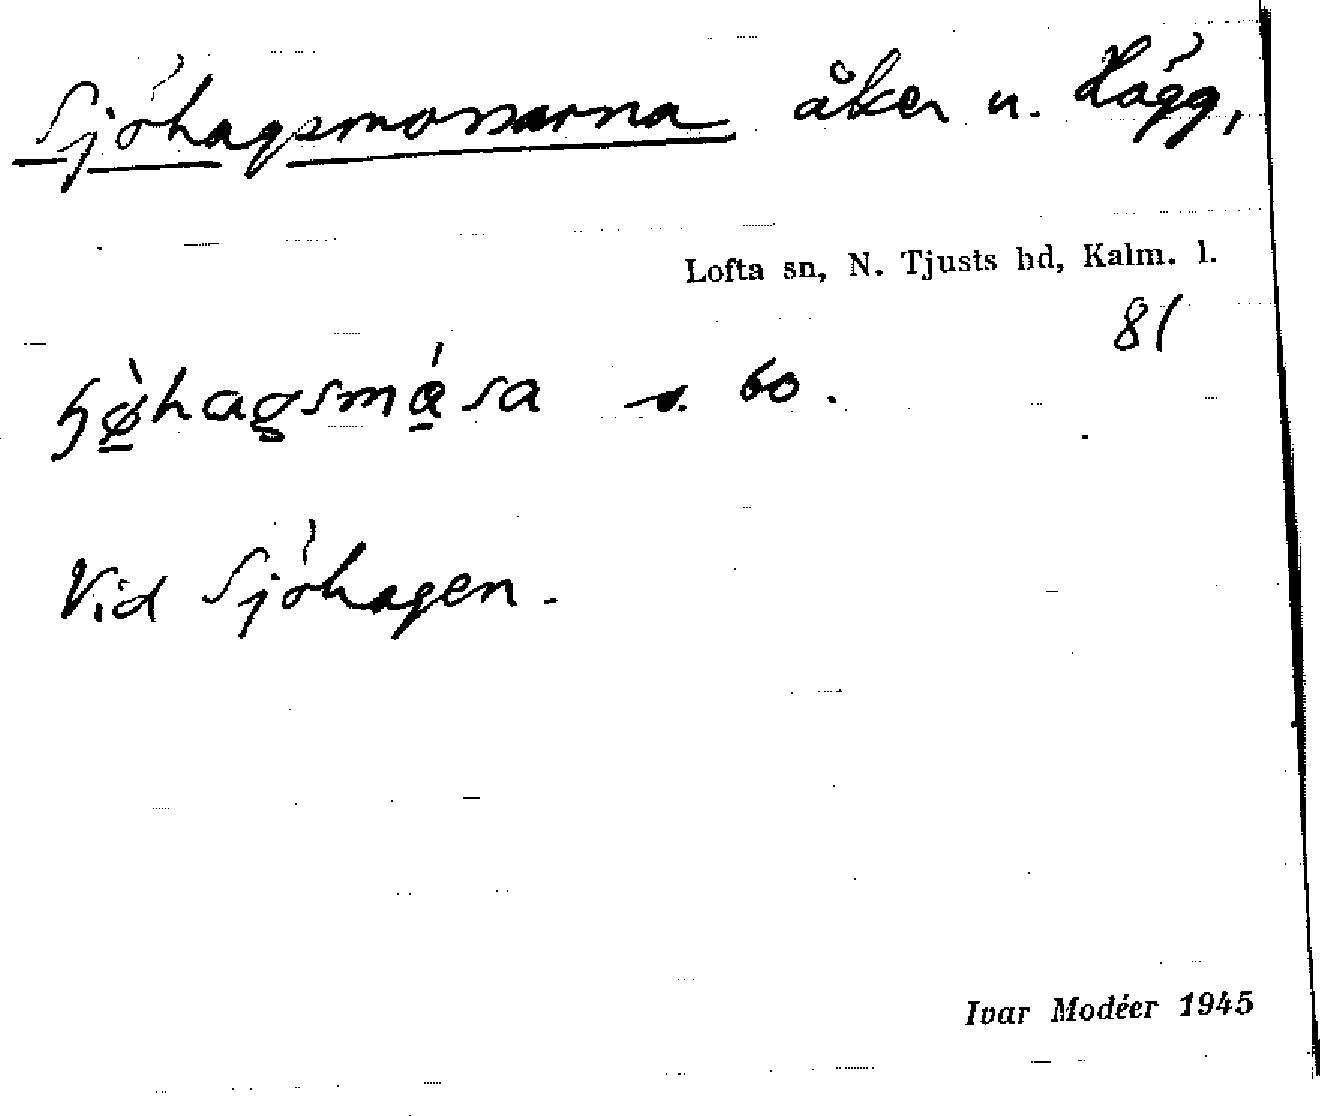 Sjöhagsmossarna åker u. Hägg,
Lofta sn, N. Tjusts hd, Kalm. l.
81
s. 60.
Vid Sjöhagen.
Ivar Modéer 1945